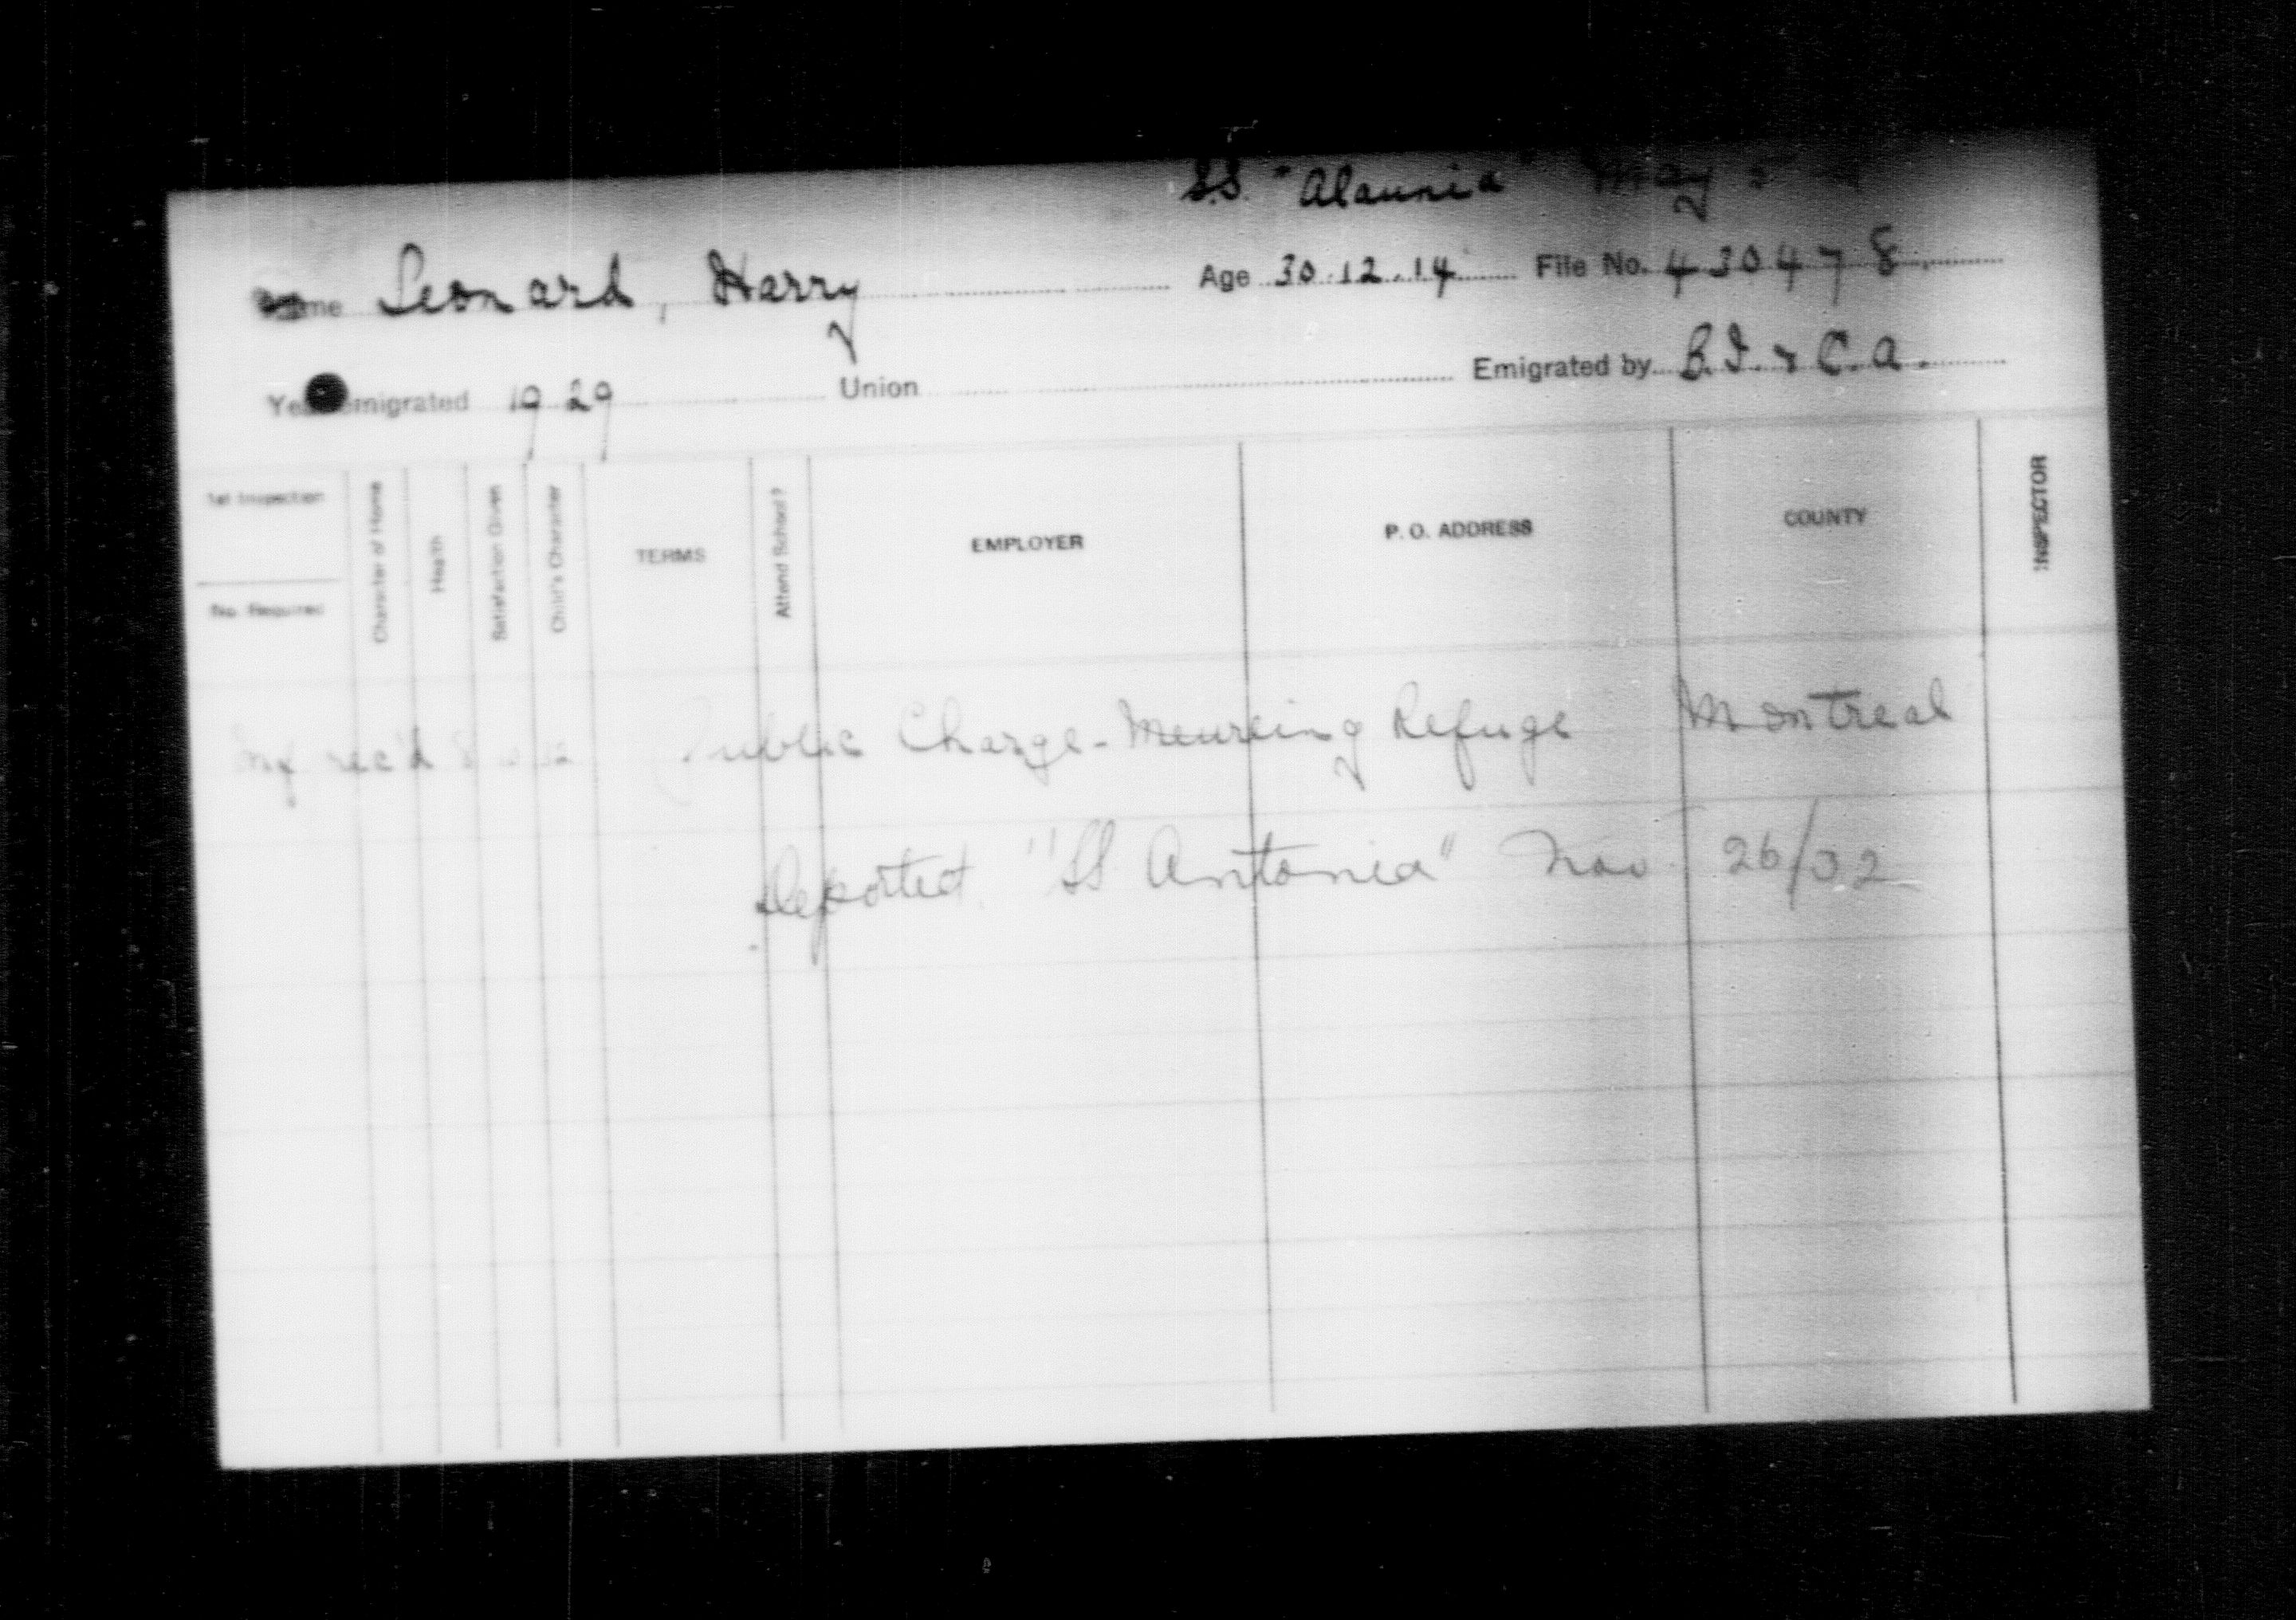 S.S. "Alaunia" May 5
Name Leonard, Harry Age 30.12.14 File No. 430478
Year emigrated 1929 Union Emigrated by B.I. & C.A.
1st Inspection
No. Required
Character of Home
Health
Satisfaction Given
Child's Character
TERMS
Attend School?
EMPLOYER
P. O. ADDRESS
COUNTY
INSPECTOR
rec'd Public Charge - Meurling Refuge Montreal
Deported "SS Antonia" Nov 26/32